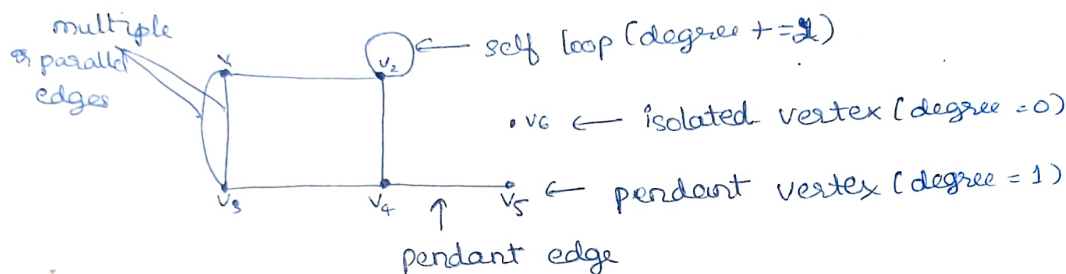 multiple
or parallel
edges
self loop (degree + =2)
V₁
V₂
. V6 ← isolated vertex (degree =0)
V₃
V₄
V₅
← pendant vertex (degree = 1)
pendant edge